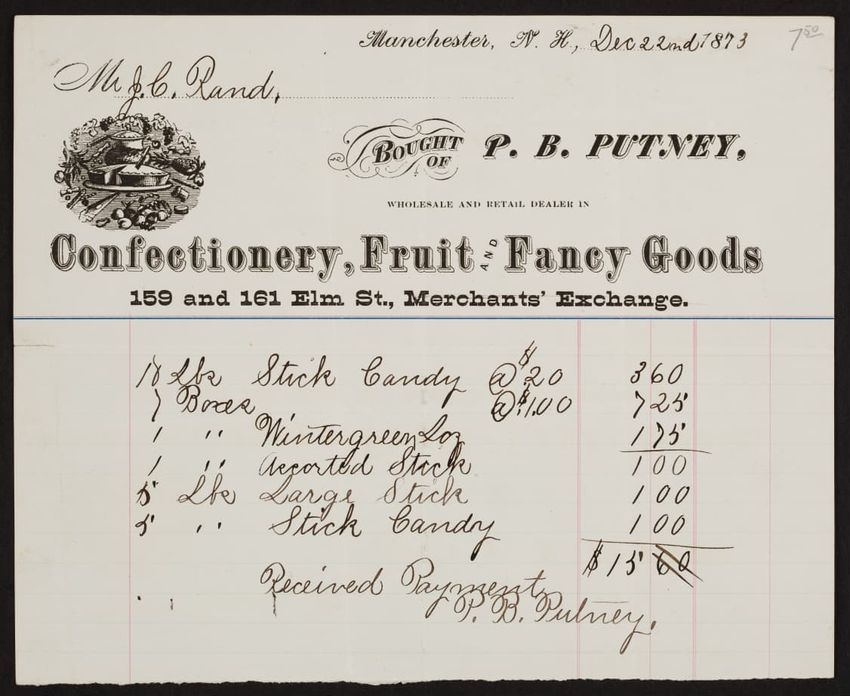 7 50
Manchester, N. H., Dec 22nd 1873
Mr J. C. Rand,
BOUGHT OF P. B. PUTNEY,
WHOLESALE AND RETAIL DEALER IN
Confectionery, Fruit AND Fancy Goods
159 and 161 Elm St., Merchants' Exchange.
18 Lbs Stick Candy @ $.20 3 60
7 Boxes @ $1.00 7 25
1 " Wintergreen Loz 1 75
1 " Assorted Stick 1 00
5 Lbs Large Stick 1 00
5 " Stick Candy 1 00
$15 60
Received Payment
P. B. Putney.